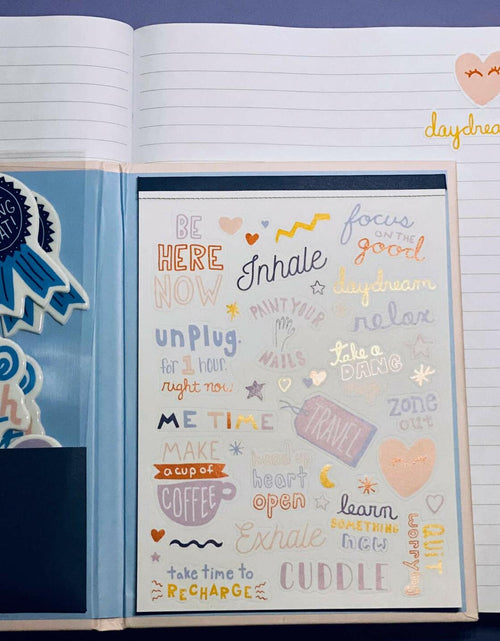 BE
HERE
NOW
focus
ON THE
good
Inhale
daydream
daydream
PAINT YOUR
NAILS
relax
unplug.
for 1 hour.
right now.
take a
DANG
ME TIME
TRAVEL
zone
out
MAKE
a cup of
COFFEE
heart
open
learn
SOMETHING
new
QUIT
worrying
Exhale
take time to
RECHARGE
CUDDLE